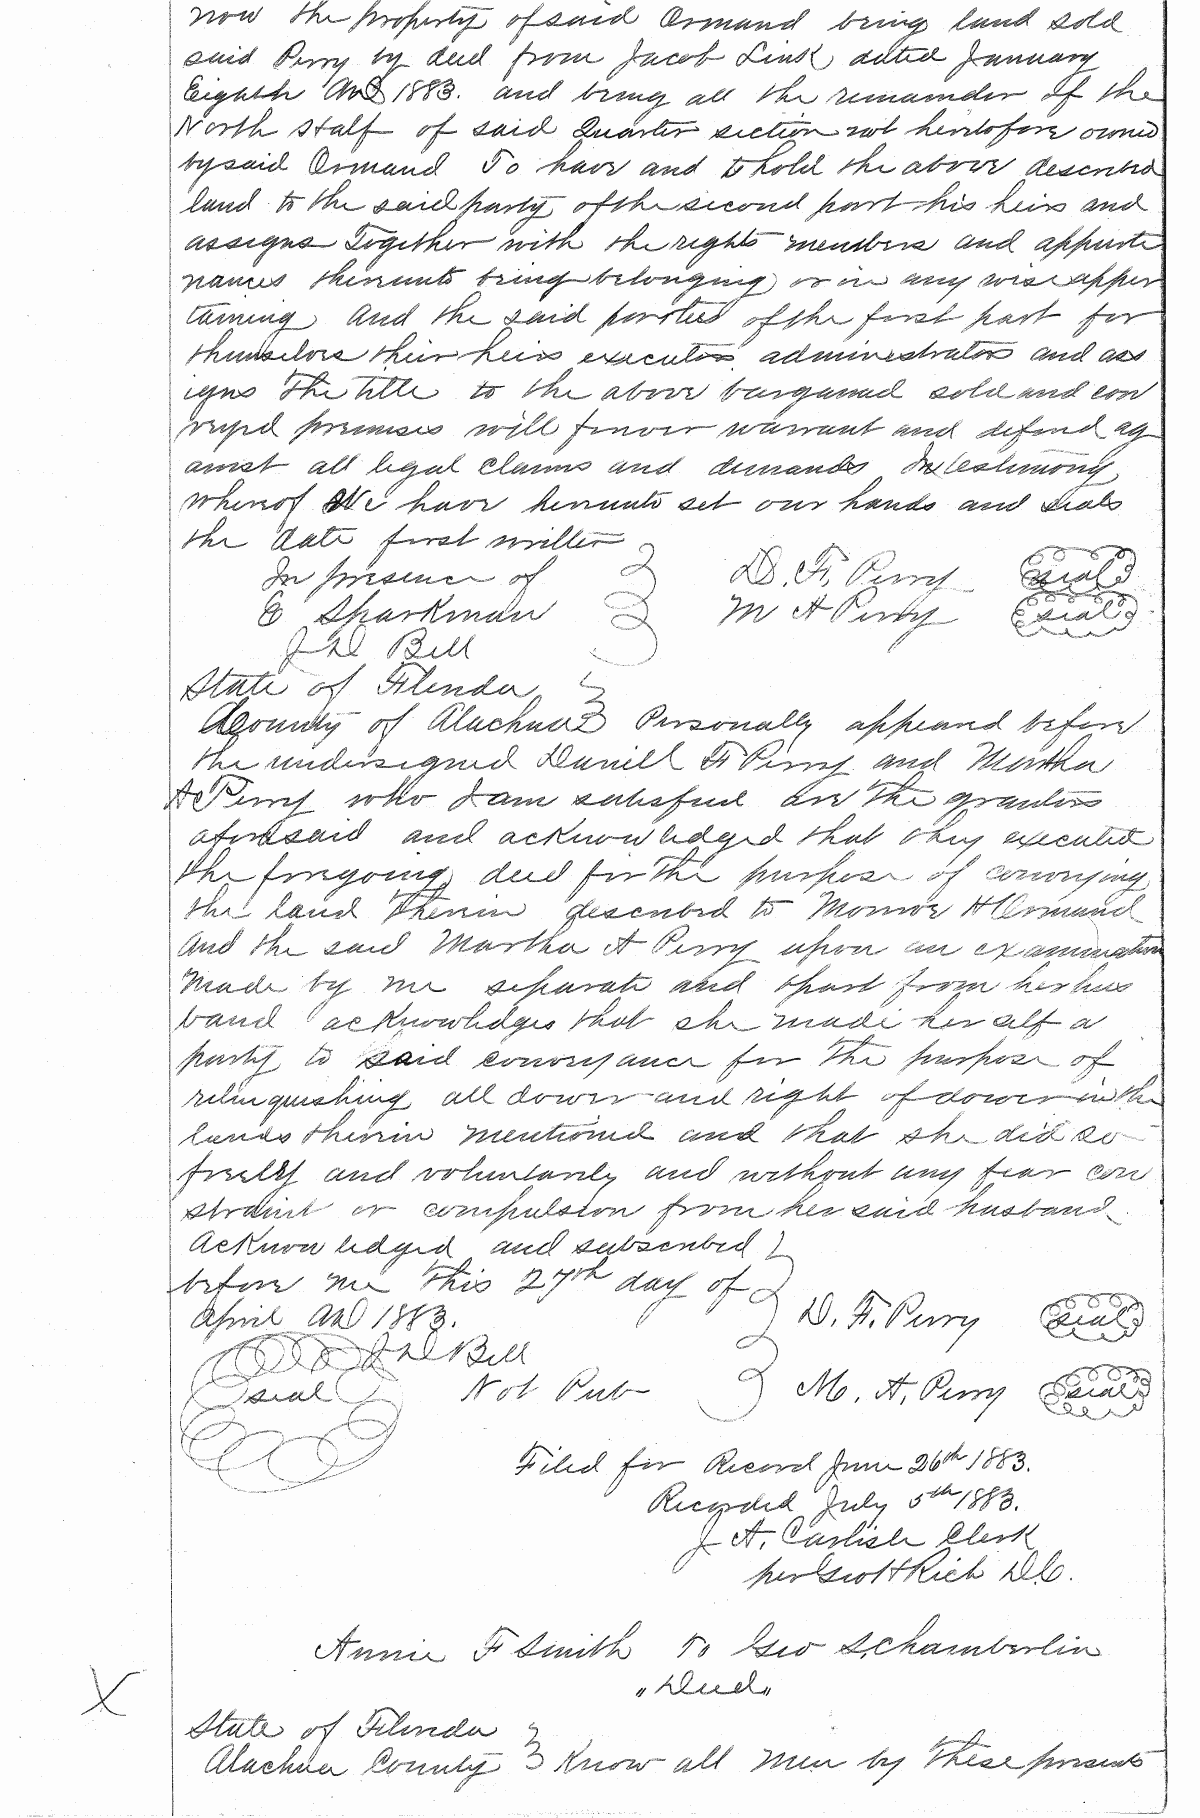 now the property of said Ormand being land sold
said Perry by deed from Jacob Link dated January
Eighth AD 1883. and being all the remainder of the
North Half of said Quarter section not heretofore owned
by said Ormand To have and to hold the above described
land to the said party of the second part his heirs and
assigns Together with the rights members and appurte
nances thereunto being belonging or in any wise apper
taining And the said parties of the first part for
themselves their heirs executors administrators and ass
igns The title to the above bargained sold and con
veyed premises will forever warrant and defend ag
ainst all legal claims and demands In testimony
whereof We have hereunto set our hands and seals
the date first written
In presence of D. F. Perry seal
E Sparkman M A Perry seal
J D Bell
State of Florida
County of Alachua Personally appeared before
the undersigned Daniell F Perry and Martha
A Perry who I am satisfied are the grantors
aforesaid and acknowledged that they executed
the foregoing deed for the purpose of conveying
the land therein described to Monroe H Ormand
And the said Martha A Perry upon an examination
made by me separate and apart from her hus
band acknowledges that she made herself a
party to said conveyance for the purpose of
relinquishing all dower and right of dower in the
lands therein mentioned and that she did so
freely and voluntarily and without any fear con
straint or compulsion from her said husband
Acknowledged and subscribed
before me this 27th day of
April AD 1883. D. F. Perry seal
J D Bell
seal Not Pub M. A. Perry seal
Filed for Record June 26th 1883.
Recorded July 5th 1883.
J A. Carlisle Clerk
per Geo H Rich D.C.
Annie F Smith To Geo S Chamberlin
"Deed"
State of Florida
Alachua County Know all Men by These presents